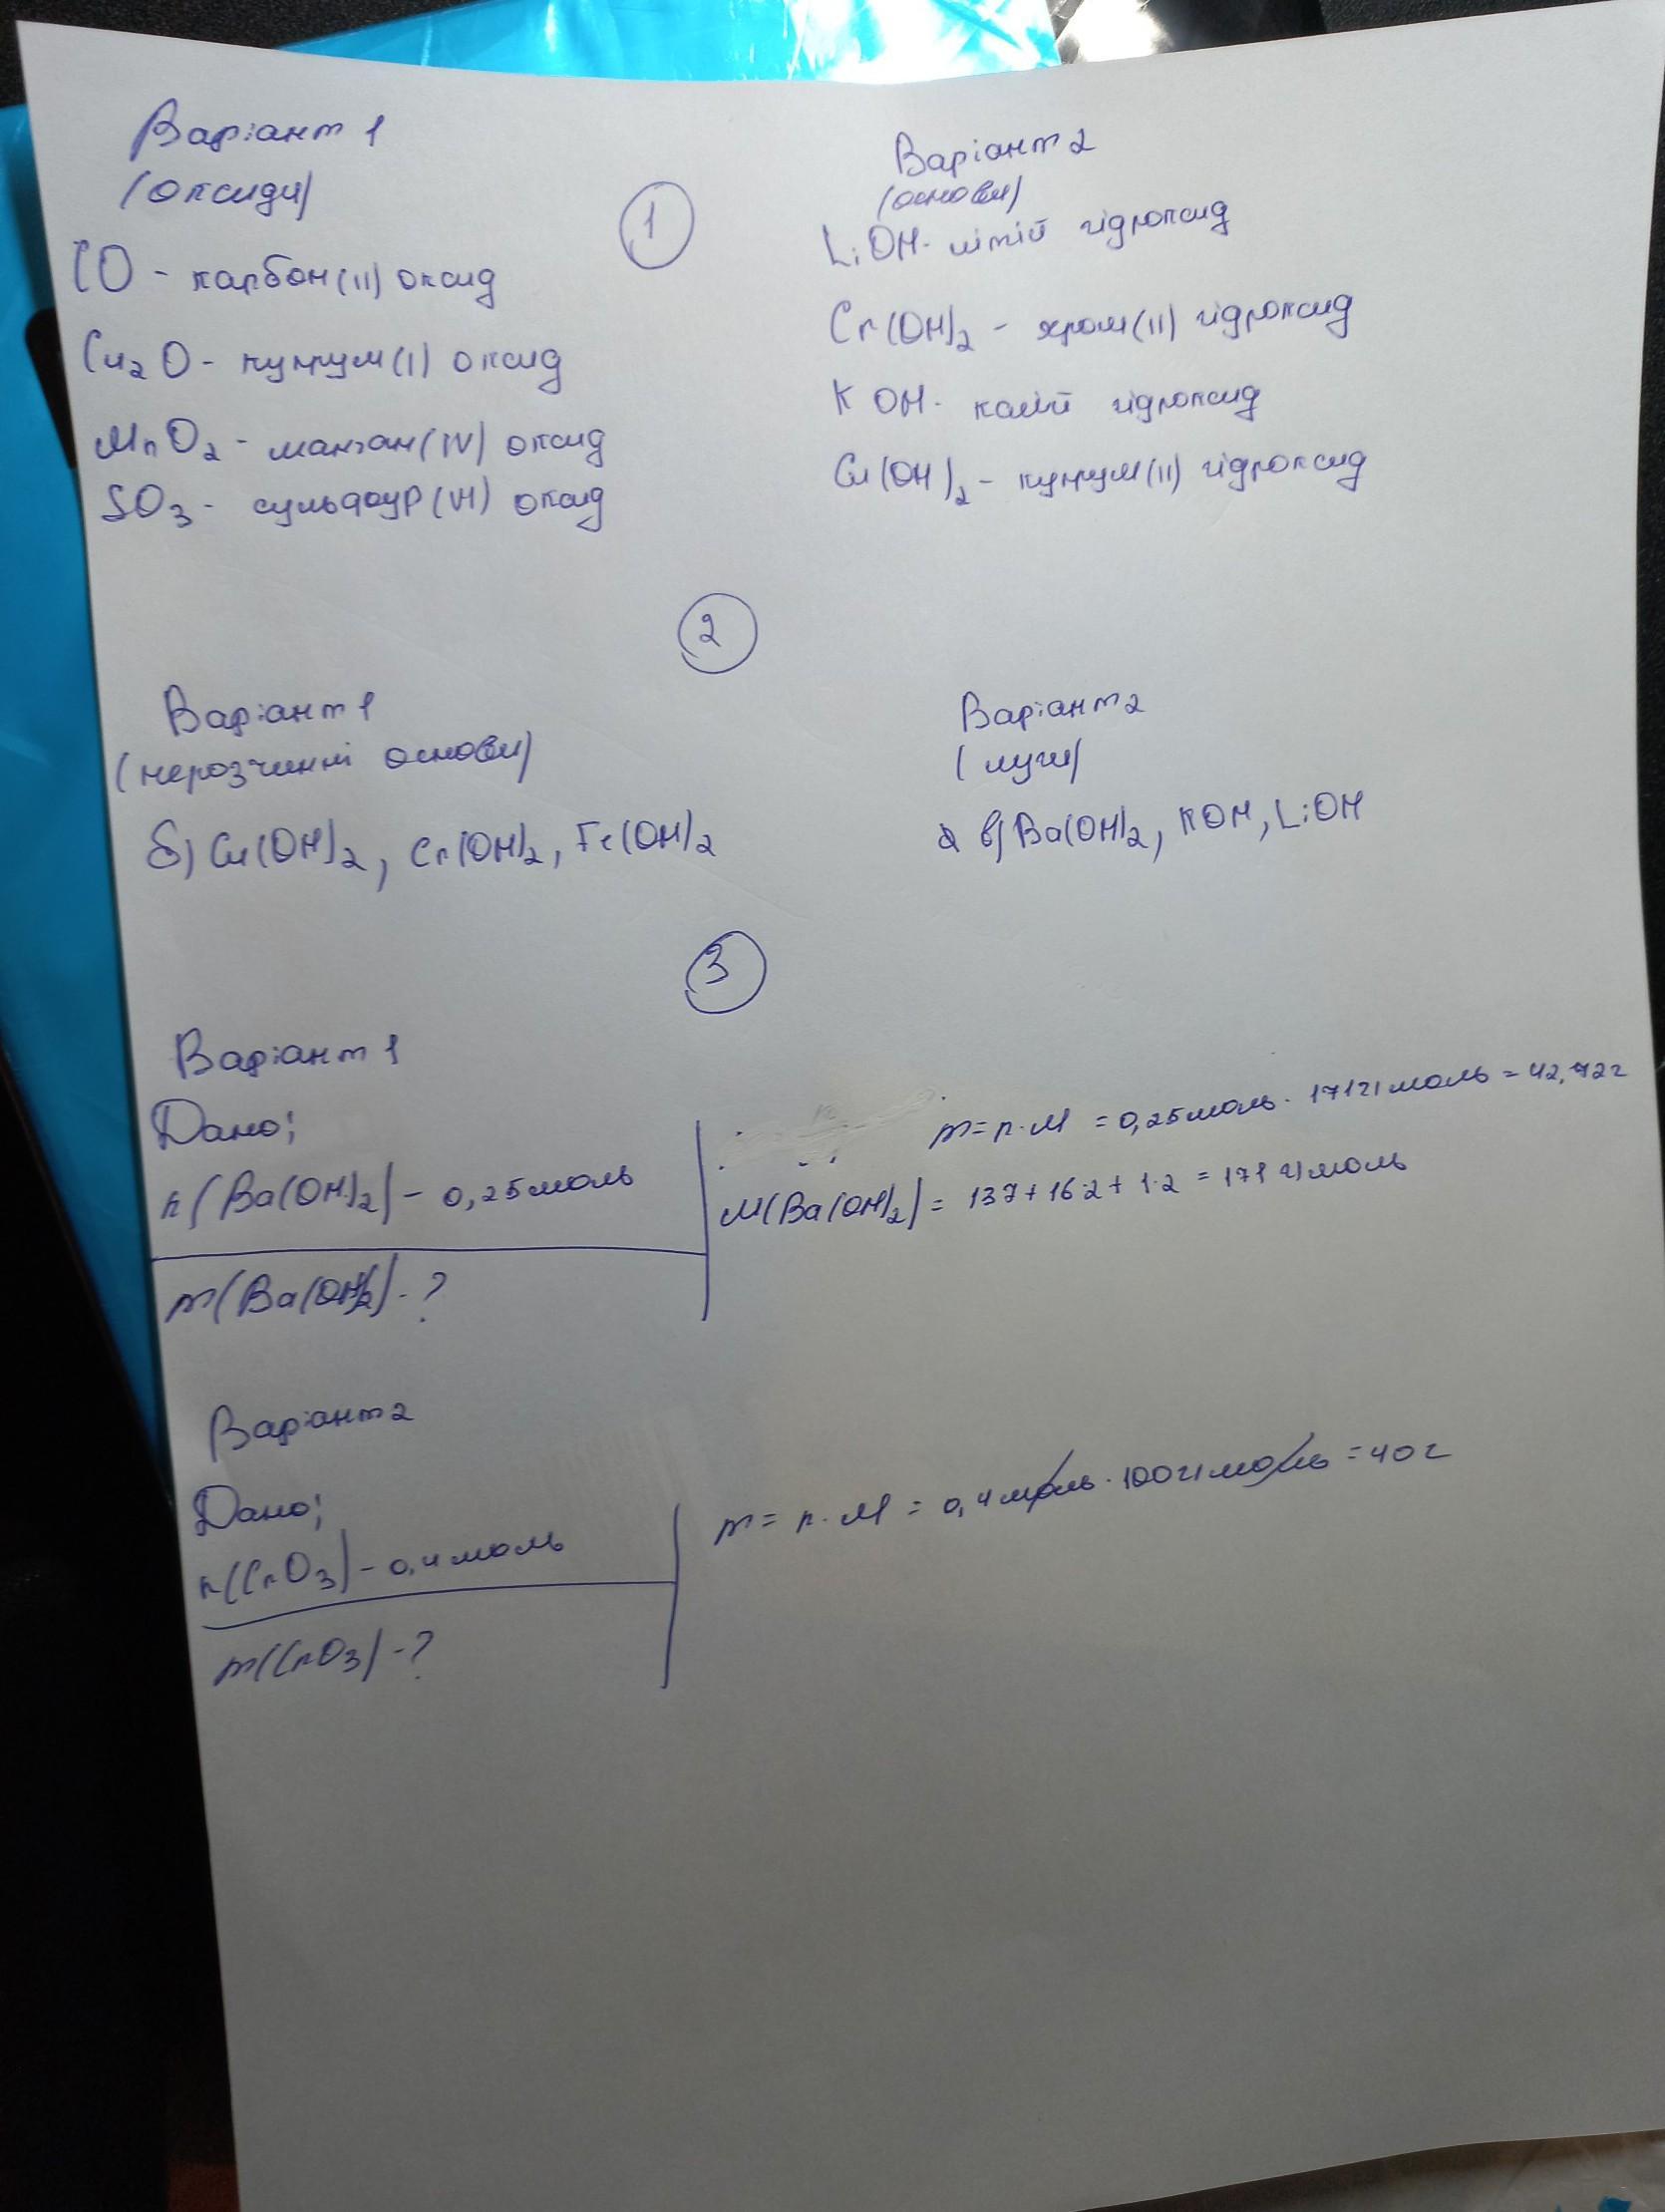 Варіант 1
(оксиди)
CO - карбон(II) оксид
Cu2O - купрум(I) оксид
MnO2 - манган(IV) оксид
SO3 - сульфур(VI) оксид
1
Варіант 2
(основи)
LiOH - літій гідроксид
Cr(OH)2 - хром(II) гідроксид
KOH - калій гідроксид
Cu(OH)2 - купрум(II) гідроксид
2
Варіант 1
(нерозчинні основи)
б) Cu(OH)2, Cr(OH)2, Fe(OH)2
Варіант 2
(луги)
в) Ba(OH)2, KOH, LiOH
3
Варіант 1
Дано:
n(Ba(OH)2) - 0,25 моль
m(Ba(OH)2) - ?
m = n · M = 0,25 моль · 171 г/моль = 42,72 г
M(Ba(OH)2) = 137 + 16·2 + 1·2 = 171 г/моль
Варіант 2
Дано:
n(CrO3) - 0,4 моль
m(CrO3) - ?
m = n · M = 0,4 моль · 100 г/моль = 40 г